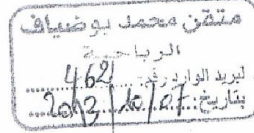 متقن محمد بوضياف
الرباحية
لبريد الوارد رقم: 462
بتاريخ: 2013/10/07